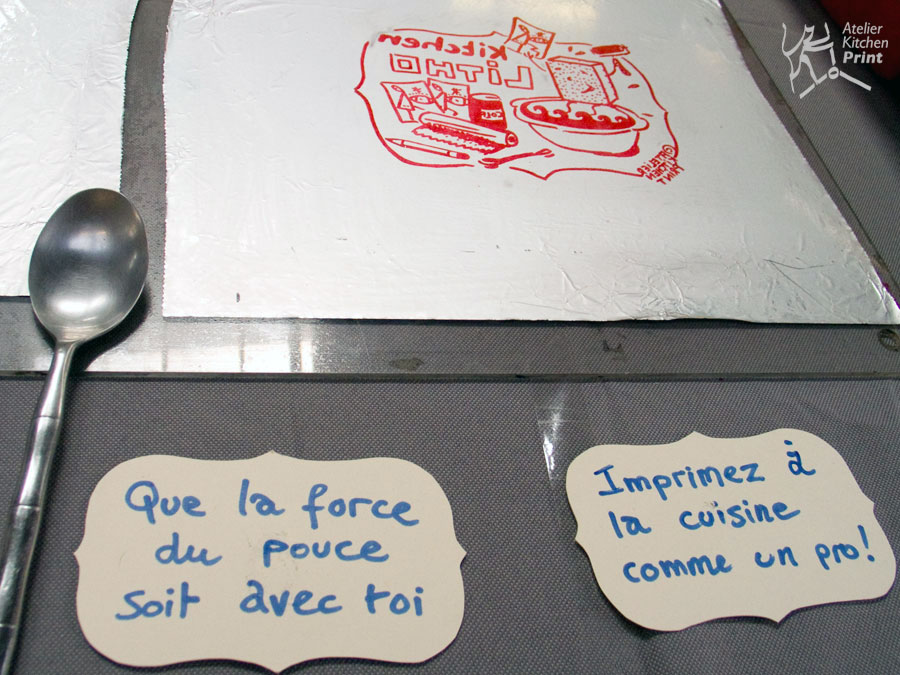 Atelier
Kitchen
Print
kitchen
LiTHO
COLA
@ATELIER
KITCHEN
PRINT
Que la force
du pouce
soit avec toi
Imprimez à
la cuisine
comme un pro!